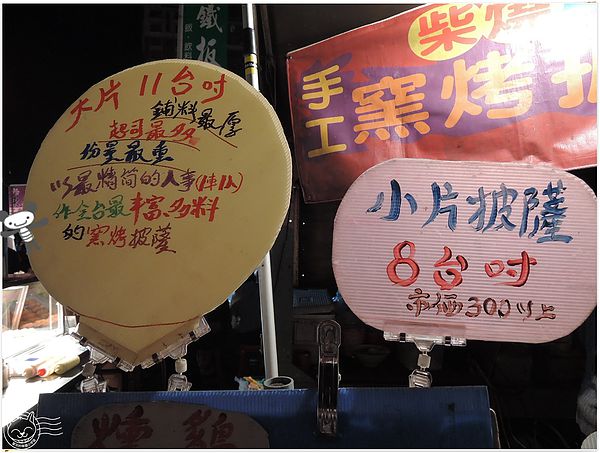 鐵板
飯．飲料
大片11台吋
鋪料最厚
起司最多
份量最重
以最精简的人事(1牛1人)
作全台最豐富、多料
的窯烤披薩
柴燒
手工窯烤披
小片披薩
8台吋
市価300以上
燻鷄